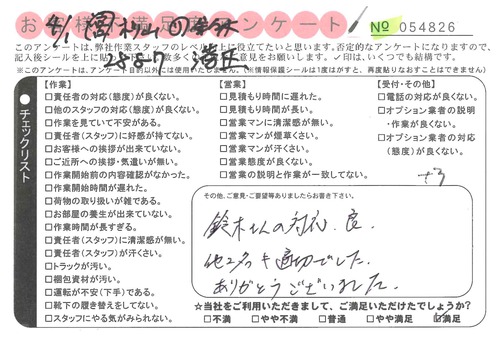 お客様満足度アンケート
№ 054826
このアンケートは、弊社作業スタッフのレベル向上に役立てたいと思います。否定的なアンケートになりますので、
記入後シールを上に貼って
意見をお願いします。✓印は、いくつでも結構です。
※このアンケートは、アンケート目的以外には使用いたしません。(※情報保護シールは1度はがすと、再度貼りなおすことはできません)
チェックリスト
【作業】
□責任者の対応(態度)が良くない。
□他のスタッフの対応(態度)が良くない。
□作業を見ていて不安がある。
□責任者(スタッフ)に好感が持てない。
□お客様への挨拶が出来ていない。
□ご近所への挨拶・気遣いが無い。
□作業開始前の内容確認がなかった。
□作業開始時間が遅れた。
□荷物の取り扱いが雑である。
□お部屋の養生が出来ていない。
□作業時間が長すぎる。
□責任者(スタッフ)に清潔感が無い。
□責任者(スタッフ)が汗くさい。
□トラックが汚い。
□梱包資材が汚い。
□運転が不安(下手)である。
□靴下の履き替えをしてない。
□スタッフにやる気がみられない。
【営業】
□見積もり時間に遅れた。
□見積もり時間が長い。
□営業マンに清潔感が無い。
□営業マンが煙草くさい。
□営業マンが汗くさい。
□営業態度が良くない。
□営業の説明と作業が一致してない。
【受付・その他】
□電話の対応が良くない。
□オプション業者の説明
・作業が良くない。
□オプション業者の対応
(態度)が良くない。
その他、ご意見・ご要望等ありましたらお書き下さい。
鈴木さんの対応、良。
他スタッフも適切でした。
ありがとうございました。
☆当社をご利用いただきまして、ご満足いただけたでしょうか?
□不満 □やや不満 □普通 □やや満足 ☑満足